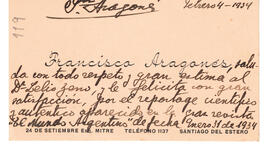 Febrero 4-1934
F. Aragonés
119
Francisco Aragonés, salu-
da con todo respeto y gran estima al
Dr. Felix Jons, y le felicita con gran
satisfacción, por el reportage científico
y auténtico aparecido en la gran revista
"El Mundo Argentino" de fecha Enero 31 de 1934
24 DE SETIEMBRE ESQ. MITRE TELÉFONO 1137 SANTIAGO DEL ESTERO